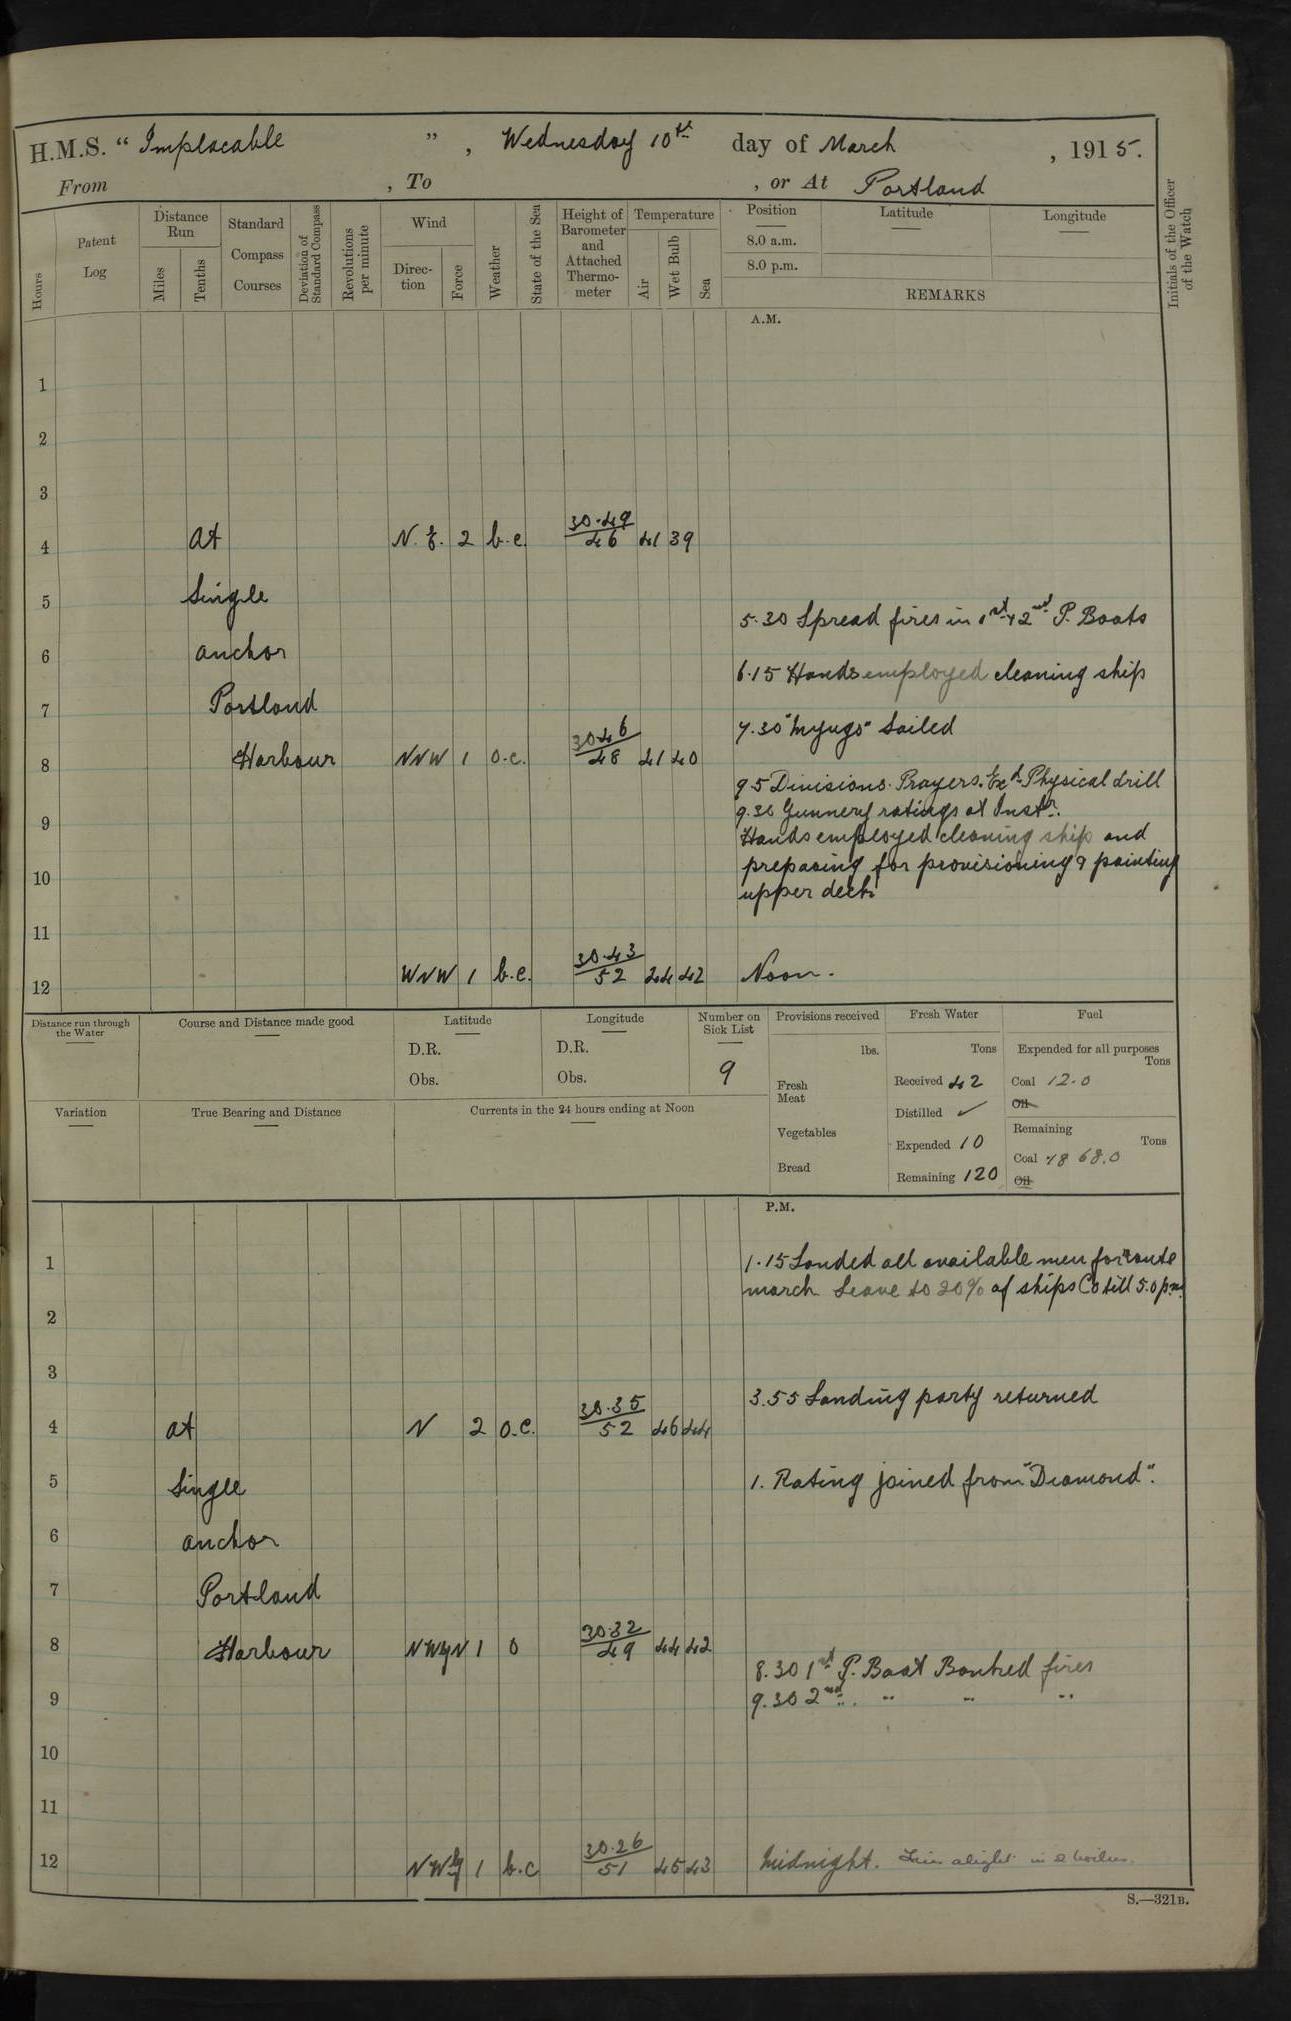 H.M.S. "Implacable", Wednesday 10th day of March, 1915.
From , To , or At Portland
Hours
Patent Log
Distance Run
Miles
Tenths
Standard Compass Courses
Deviation of Standard Compass
Revolutions per minute
Wind
Direction
Force
Weather
State of the Sea
Height of Barometer and Attached Thermometer
Temperature
Air
Wet Bulb
Sea
Position
8.0 a.m.
8.0 p.m.
Latitude
Longitude
REMARKS
Initials of the Officer of the Watch
A.M.
1
2
3
4 At N.E. 2 b.c. 30.49/46 41 39
5 Single
5.30 Spread fires in 1st & 2nd P. Boats
6 anchor
6.15 Hands employed cleaning ship
7 Portland
7.30 Sailed
8 Harbour NNW 1 o.c. 30.46/48 41 40
9.5 Divisions. Prayers. Exd Physical drill
9.30 Gunnery ratings at Instr.
9
Hands employed cleaning ship and
preparing for provisioning & painting
10
upper deck
11
12 WNW 1 b.c. 30.43/52 44 42 Noon.
Distance run through the Water
Course and Distance made good
Latitude
D.R.
Obs.
Longitude
D.R.
Obs.
Number on Sick List
9
Provisions received
lbs.
Fresh Meat
Vegetables
Bread
Fresh Water
Tons
Received 42
Distilled ✓
Expended 10
Remaining 120
Fuel
Expended for all purposes
Tons
Coal 12.0
Oil
Remaining
Tons
Coal 868.0
Oil
Variation
True Bearing and Distance
Currents in the 24 hours ending at Noon
P.M.
1 1.15 Landed all available men for route
march Leave to 20% of ships Co till 5.0 p.m.
2
3
3.55 Landing party returned
4 at N 2 o.c. 30.35/52 46 44
5 Single 1. Rating joined from "Diamond".
6 anchor
7 Portland
8 Harbour NWyN 1 o 30.32/49 44 42
8.30 1st P. Boat Banked fires
9 9.30 2nd " " "
10
11
12 NWy 1 b.c 30.26/51 45 43 Midnight. Fires alight in 2 boilers.
S.—321B.